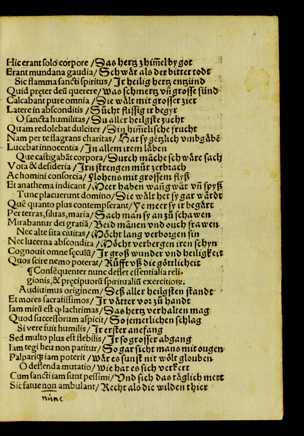 Hic erant solo corpore / Das hertz zhim̄el by got
Erant mundana gaudia / Schwår als der bitter todt
Sic flamma sancti spiritus / Ir heilig hertz entzünd
Quid preter deū querere / Was schmertz vn̄ grosse sünd
Calcabant pure omnia / Sie wält mit grosser zier
Latere in absconditis / Sücht flissig ir begyr
O sancta humilitas / Du aller heilgste zucht
Quam redolebat dulciter / Din him̄lische frucht
Nam per te flagrans charitas / Hat sy
Lucebat innocentia / In allem irem läben
Que castigabāt corpora / Durch mäche schwäre sach
Vota & desideria / Irn strengen müt zerbrach
Ac homini consorcia / Flohens mit grossem flyß
Et anathema indicant / Meer haben wan̄ wär vn̄ spyß
Tunc placierunt domino / Die wält het sy gar
Quē quanto plus contempserant / Ye meer sy it begärt
Per terras, situs, maria / Sach man sy an zü schawen
Mirabantur dei gratiā / Beid mänen vnd ouch frawen
Nec alte sita cuitas / Mocht lang verborgen sin
Nec lucerna abscondita / Mocht verbergen iren schyn
Cognouit omne seculū / Ir groß wunder vnd heiligkeit
Quos scire nemo poterat / Rüfft vß die göttlicheit
¶ Consequenter nunc deflet essentialia reli-
gionis, & precipuorū spiritualiū exercitiorū.
Auditimus originem / Deß aller heilgsten standt
Et mores sacratissimos / Ir vätter vor zü handt
Iam mirū est q̄ lachrimas / Das hertz verhalten mag
Quod successorium aspicit / So jemerlichen schlag
Si vere fuit humilis / Ir erster anefang
Sed multo plus est flebilis / Ir so grosser abgang
Iam tegi hec non patitur / So gar sicht mans mit ougen
Palpariq; iam poterit / Wår es sunst nit wölt glouben
O deflenda mutatio / Wie hat es sich verkert
Cum sancti iam sunt pessimi / Vnd sich das täglich mert
Sic fatue non ambulant / Recht als die wilden thier
nūnc